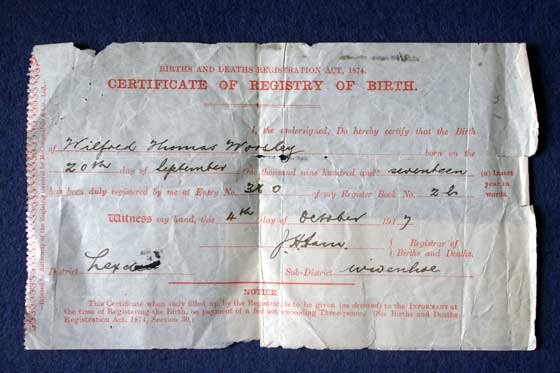 BIRTHS AND DEATHS REGISTRATION ACT, 1874.
CERTIFICATE OF REGISTRY OF BIRTH.
I, the undersigned, Do hereby certify that the Birth
of Wilfred Thomas Worsley born on the
20th day of September One thousand nine hundred and seventeen (a) Insert year in words.
has been duly registered by me at Entry No. 320 of my Register Book No. 26
Witness my hand, this 4th day of October 1917
Registrar of Births and Deaths.
District Sub-District Wivenhoe
NOTICE
This Certificate when duly filled up by the Registrar, is to be given (as desired) to the INFORMANT at
the time of Registering the Birth, on payment of a fee not exceeding Three-pence. (See Births and Deaths
Registration Act, 1874, Section 30.)